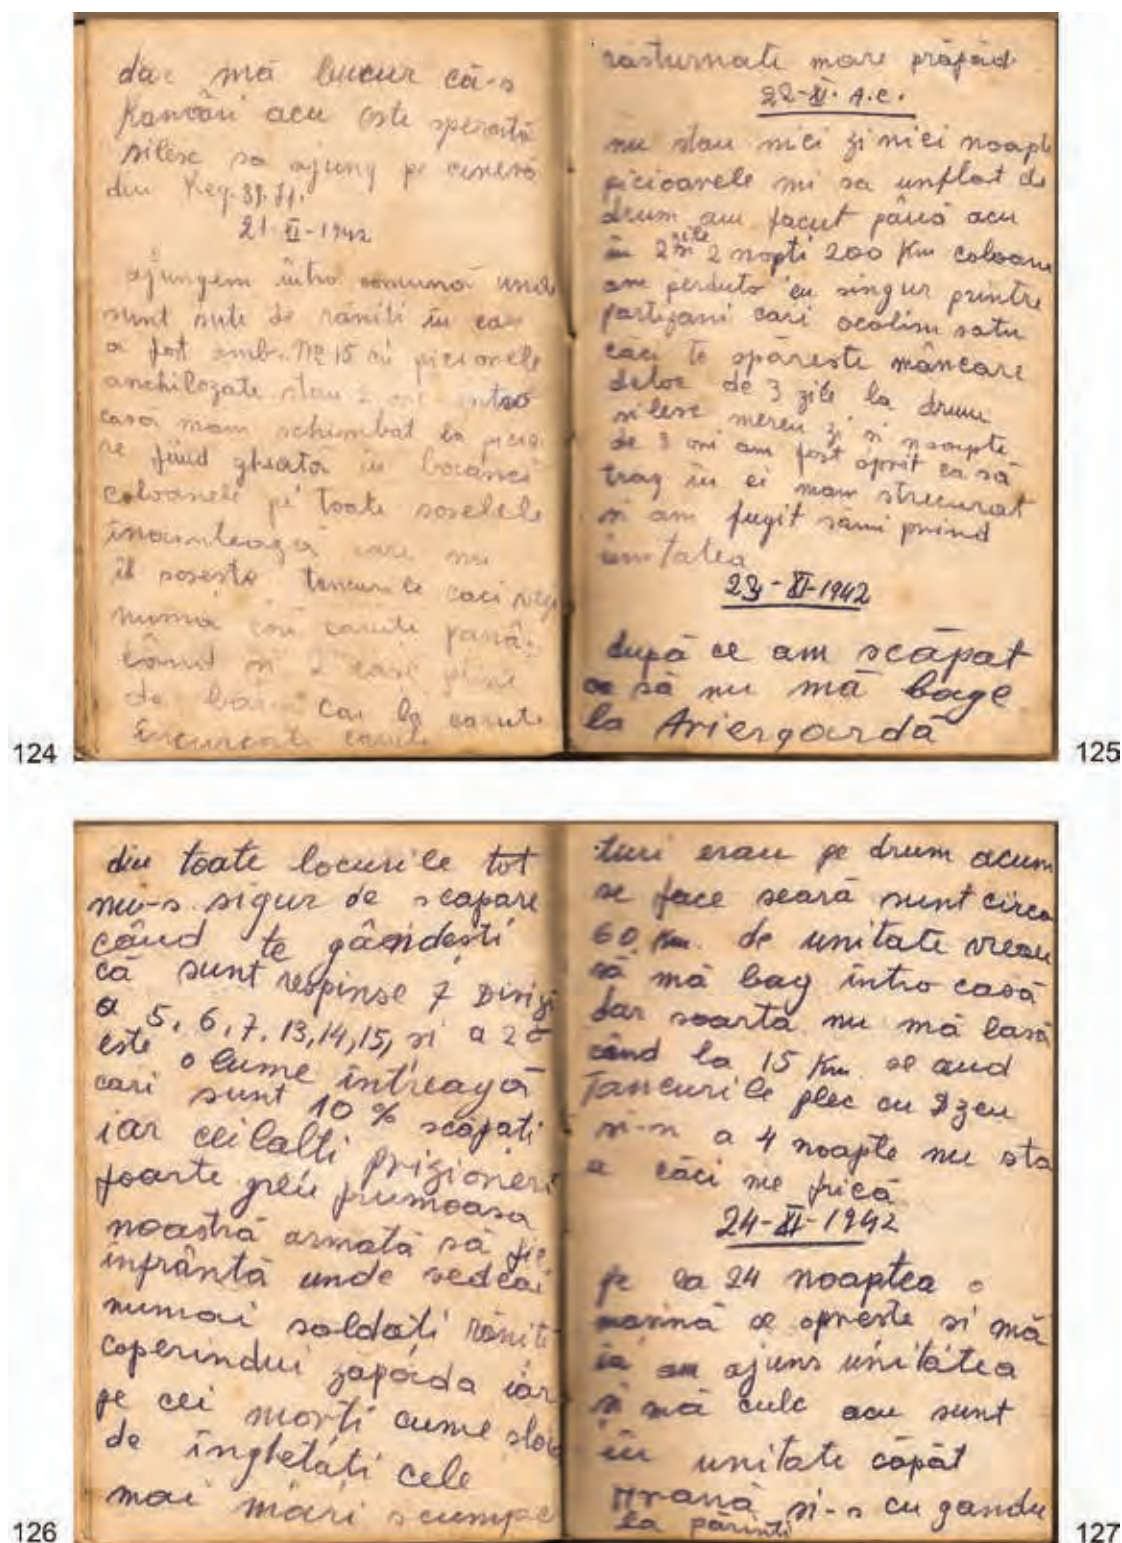 dar mă bucur că-s
acu este speranță
silesc sa ajung pe cineva
din Reg. 39. If.
21-XI-1942
ajungem intro comună unde
sunt sute de răniti in care
a fost amb. № 15 ni picioarele
anchilozate stau 2 ore intro
casa mam schimbat la picioa
re fiind ghiata in bocanci
coloanele pe toate soselele
inainteaza care nu
il soseste tancurile caci
numa căruțe
si 2 cai
de cai la carute
carute
124
răsturnate mare prăpăd
22-XI- A.C.
nu stau nici zi nici noapte
picioarele mi sa unflat de
drum am facut până acu
in 2 zile si 2 nopti 200 Km coloana
am perduto eu singur printre
partizani cari ocolim satu
căci te opăreste mâncare
deloc de 3 zile la drum
silesc mereu zi si noapte
de 3 ori am fost oprit ca să
trag in ei mam strecurat
si am fugit sămi prind
unitatea
23-XI-1942
după ce am scăpat
ca să nu mă bage
la Ariergardă
125
din toate locurile tot
nu-s sigur de scapare
când te gândesti
că sunt respinse 7 Divizi
a 5, 6, 7, 13, 14, 15, si a 20
este o lume intreagă
cari sunt 10% scapati
iar ceilalti prizioneri
foarte greu frumoasa
noastră armată să fie
infrântă unde vedeai
numai soldati răniti
coperindui zapăda iar
pe cei morti cume sloi
de înghetati cele
mai mari scumpe
126
turi erau pe drum acum
se face seară sunt circa
60 Km. de unitate vreau
să mă bag intro casă
dar soarta nu mă lasă
când la 15 Km se aud
Tancurile plec cu Dzeu
si-n a 4 noapte nu sta
u căci me frică
24-XI-1942
pe la 24 noaptea o
masină se opreste si mă
ia am ajuns unitatea
si mă culc acu sunt
in unitate căpăt
Hrană si-s cu gandu
la părinti
127